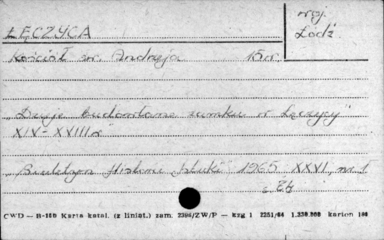 woj.
Łódź
ŁĘCZYCA
Kościół św. Andrzeja 15 w.
"Dzieje budowlane zamku w Łęczycy
XIV-XVIII w
"Biuletyn Historii Sztuki" 1965 XXVI, nr 1
s. 84
CWD — B-160 Karta katal. (z liniat.) zam. 2396/ZW/P — kzg 1 2251/64 1.330.000 karton 180